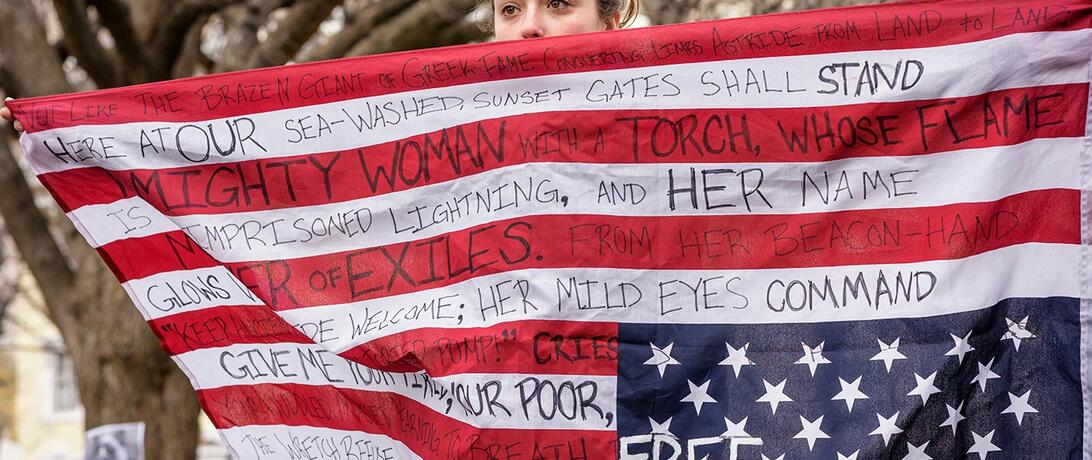 NOT LIKE THE BRAZEN GIANT OF GREEK FAME CONQUERING LIMBS ASTRIDE FROM LAND to LAND
HERE AT OUR SEA-WASHED, SUNSET GATES SHALL STAND
A MIGHTY WOMAN WITH A TORCH, WHOSE FLAME
IS IMPRISONED LIGHTNING, AND HER NAME
OF EXILES. FROM HER BEACON-HAND
GLOWS WELCOME; HER MILD EYES COMMAND
"KEEP POMP!" CRIES
GIVE ME YOUR TIRED, YOUR POOR,
YOUR HUDDLED YEARNING TO BREATH
FREE
THE WRETCH REFUSE